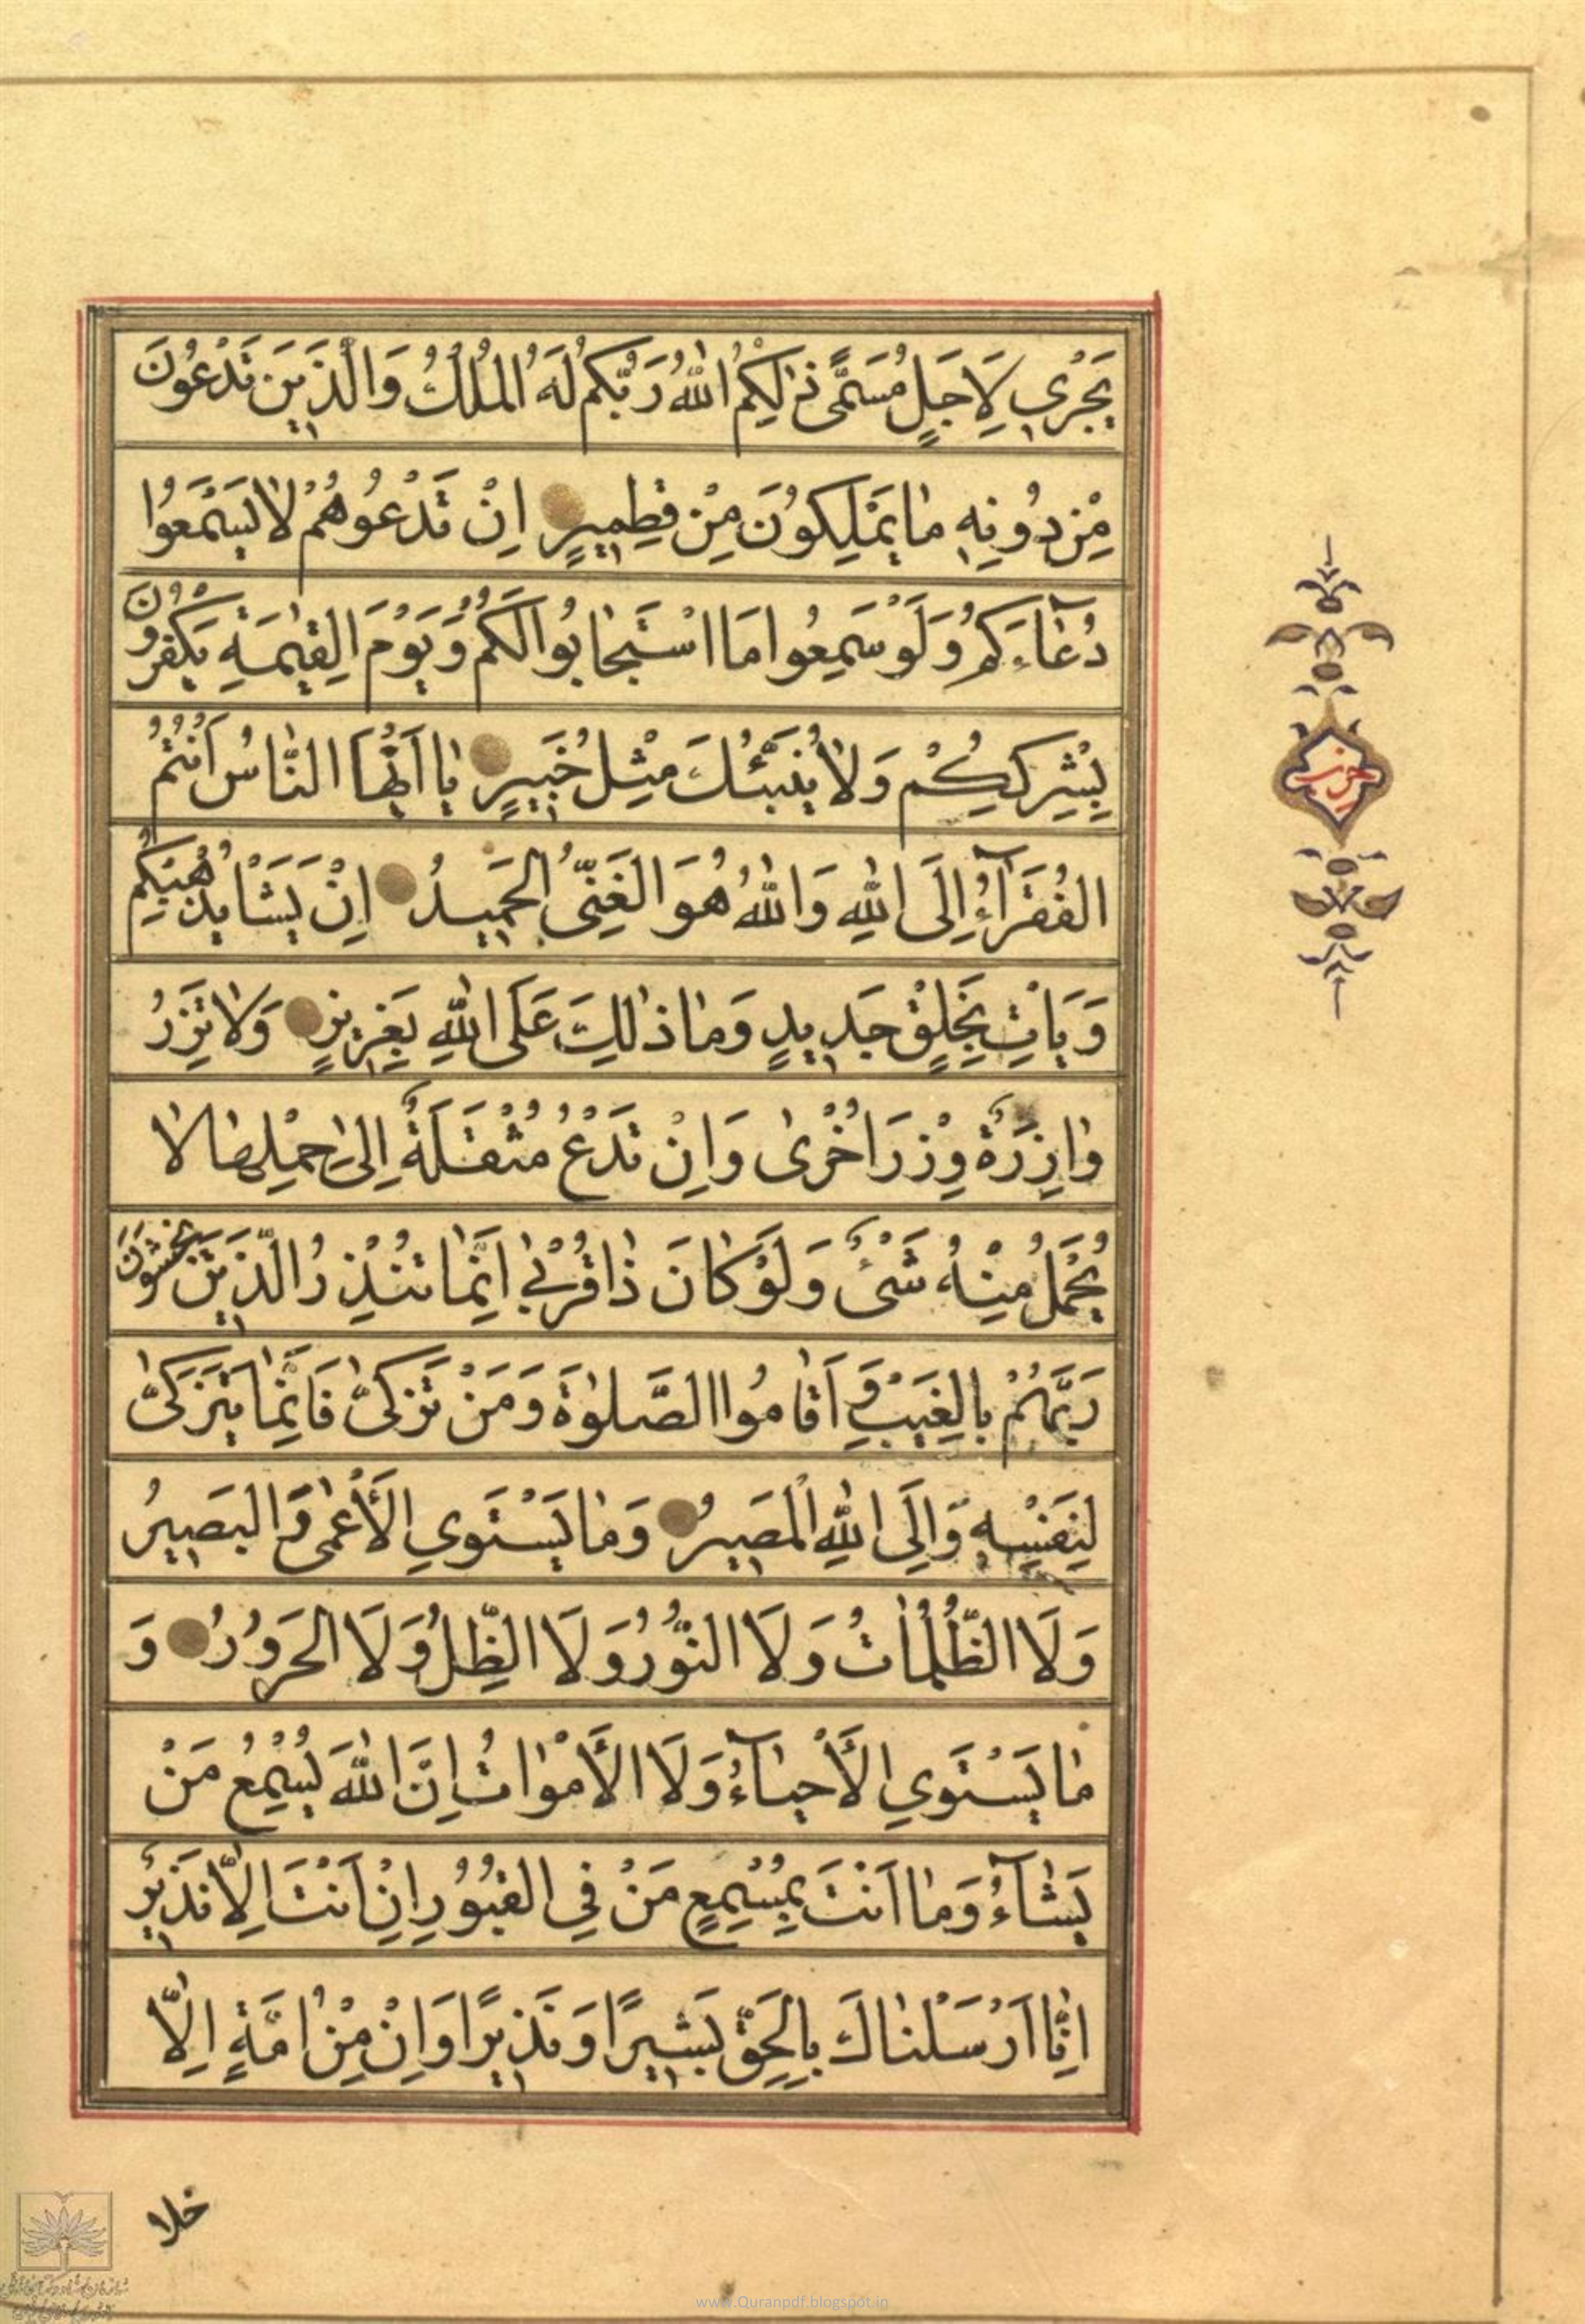 يَجْرِي لِاَجَلٍ مُسَمًّى ذٰلِكُمُ اللّٰهُ رَبُّكُمْ لَهُ الْمُلْكُ وَالَّذِينَ تَدْعُونَ
مِنْ دُونِهِ مٰا يَمْلِكُونَ مِنْ قِطْمِيرٍ اِنْ تَدْعُوهُمْ لٰا يَسْمَعُوا
دُعٰاءَكُمْ وَلَوْ سَمِعُوا مَا اسْتَجٰابُوا لَكُمْ وَيَوْمَ الْقِيٰمَةِ يَكْفُرُونَ
بِشِرْكِكُمْ وَلٰا يُنَبِّئُكَ مِثْلُ خَبِيرٍ يٰا اَيُّهَا النّٰاسُ اَنْتُمُ
الْفُقَرٰآءُ اِلَى اللّٰهِ وَاللّٰهُ هُوَ الْغَنِيُّ الْحَمِيدُ اِنْ يَشَأْ يُذْهِبْكُمْ
وَيَأْتِ بِخَلْقٍ جَدِيدٍ وَمٰا ذٰلِكَ عَلَى اللّٰهِ بِعَزِيزٍ وَلٰا تَزِرُ
وٰازِرَةٌ وِزْرَ اُخْرٰى وَاِنْ تَدْعُ مُثْقَلَةٌ اِلىٰ حِمْلِهٰا لٰا
يُحْمَلْ مِنْهُ شَيْءٌ وَلَوْ كٰانَ ذٰا قُرْبىٰ اِنَّمٰا تُنْذِرُ الَّذِينَ يَخْشَوْنَ
رَبَّهُمْ بِالْغَيْبِ وَ اَقٰامُوا الصَّلٰوةَ وَمَنْ تَزَكّىٰ فَاِنَّمٰا يَتَزَكّىٰ
لِنَفْسِهِ وَاِلَى اللّٰهِ الْمَصِيرُ وَمٰا يَسْتَوِي الْأَعْمٰى وَالْبَصِيرُ
وَلَا الظُّلُمٰاتُ وَلَا النُّورُ وَلَا الظِّلُّ وَلَا الْحَرُورُ وَ
مٰا يَسْتَوِي الْأَحْيٰآءُ وَلَا الْأَمْوٰاتُ اِنَّ اللّٰهَ يُسْمِعُ مَنْ
يَشٰآءُ وَمٰا اَنْتَ بِمُسْمِعٍ مَنْ فِي الْقُبُورِ اِنْ اَنْتَ اِلّٰا نَذِيرٌ
اِنّٰا اَرْسَلْنٰاكَ بِالْحَقِّ بَشِيرًا وَنَذِيرًا وَاِنْ مِنْ اُمَّةٍ اِلّٰا
خلا
حزب
www.Quranpdf.blogspot.in